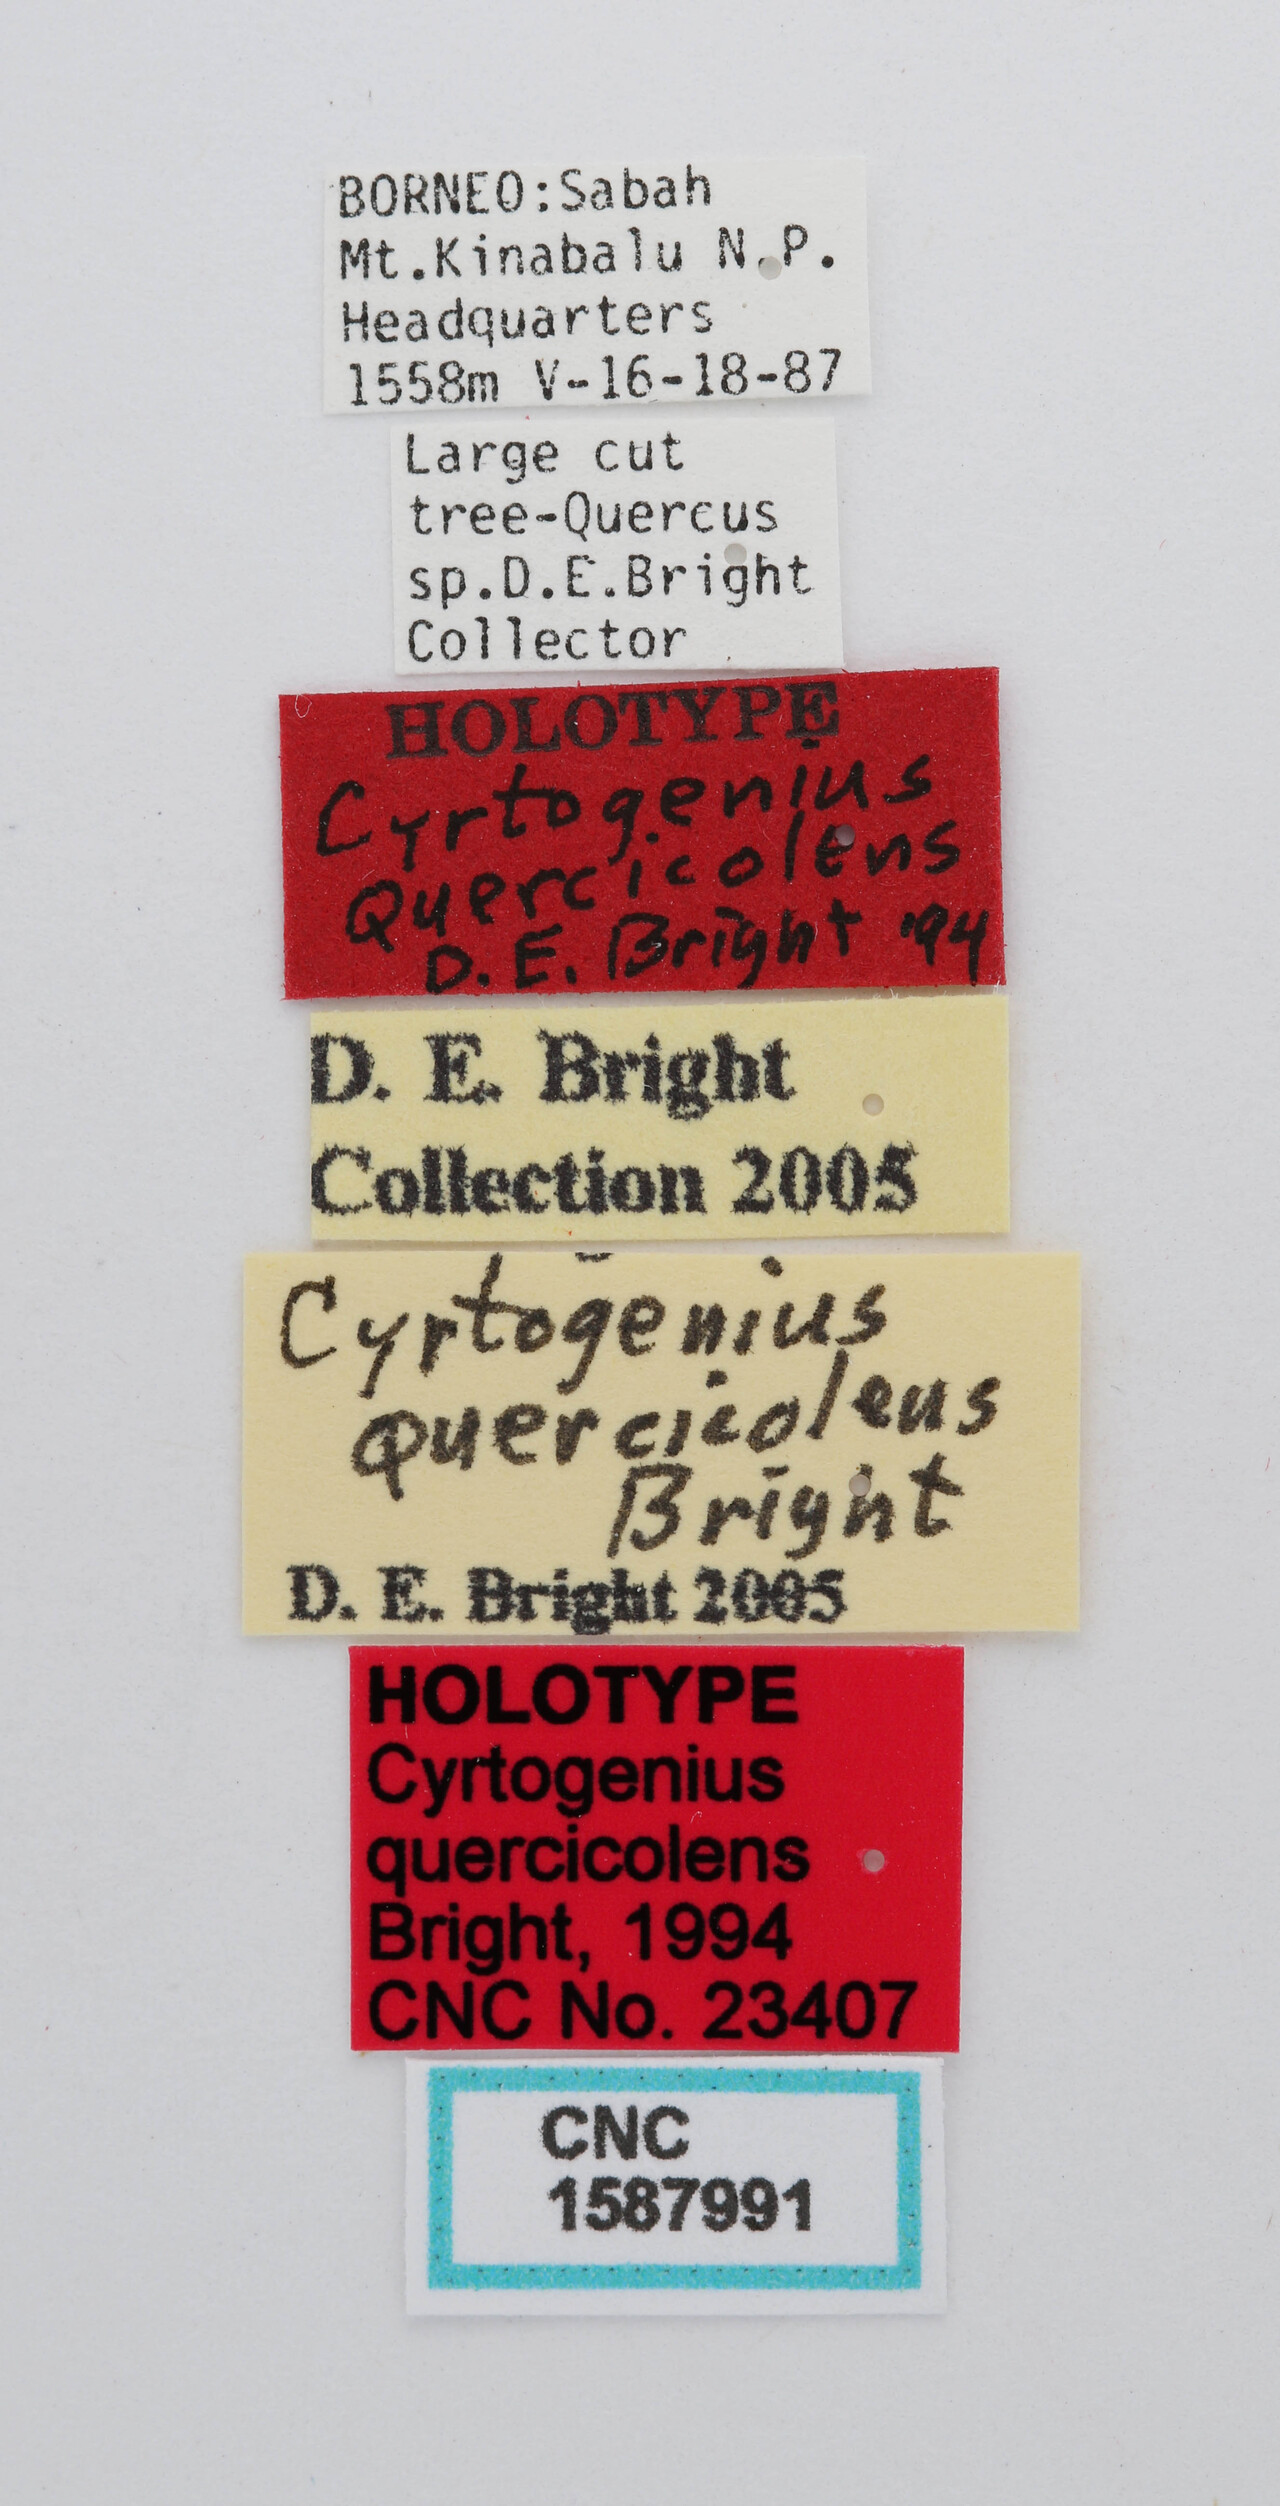 BORNEO:Sabah
Mt.Kinabalu N.P.
Headquarters
1558m V-16-18-87
Large cut
tree-Quercus
sp.D.E.Bright
Collector
HOLOTYPE
Cyrtogenius
quercicolens
D.E. Bright '94
D. E. Bright
Collection 2005
Cyrtogenius
quercicolens
Bright
D. E. Bright 2005
HOLOTYPE
Cyrtogenius
quercicolens
Bright, 1994
CNC No. 23407
CNC
1587991